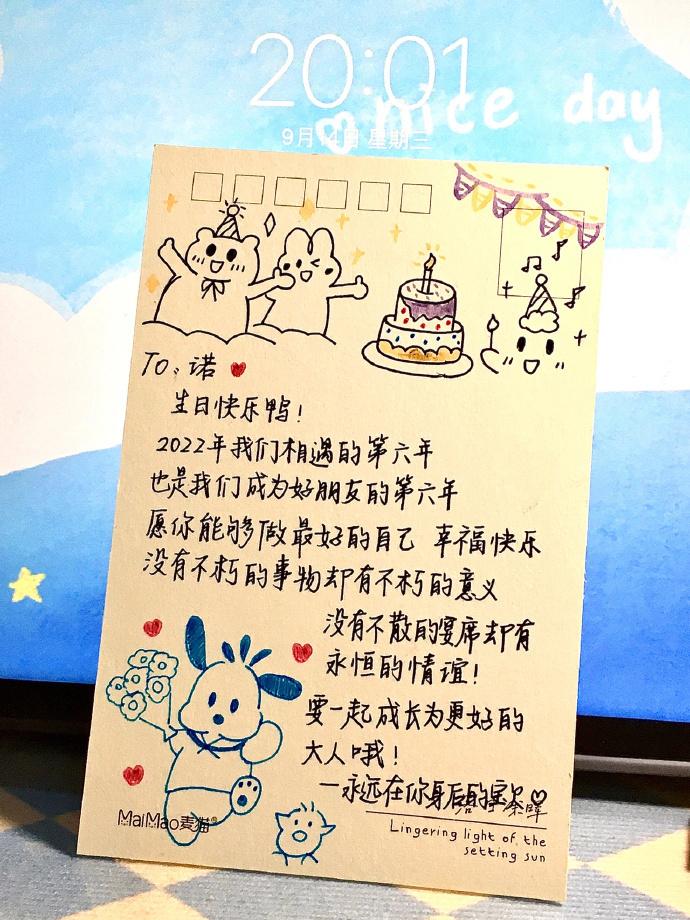 20:01
nice day
9月14日 星期三
TO: 诺
生日快乐鸭!
2022年我们相遇的第六年
也是我们成为好朋友的第六年
愿你能够做最好的自己 幸福快乐
没有不朽的事物却有不朽的意义
没有不散的宴席却有
永恒的情谊!
要一起成长为更好的
大人哦!
—永远在你身后的宝
余晖
MaiMao麦猫®
Lingering light of the
setting sun